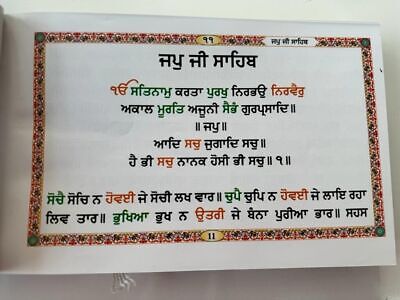 ੧੧
ਜਪੁ ਜੀ ਸਾਹਿਬ
ਜਪੁ ਜੀ ਸਾਹਿਬ
ੴ ਸਤਿਨਾਮੁ ਕਰਤਾ ਪੁਰਖੁ ਨਿਰਭਉ ਨਿਰਵੈਰੁ
ਅਕਾਲ ਮੂਰਤਿ ਅਜੂਨੀ ਸੈਭੰ ਗੁਰਪ੍ਰਸਾਦਿ॥
॥ ਜਪੁ॥
ਆਦਿ ਸਚੁ ਜੁਗਾਦਿ ਸਚੁ॥
ਹੈ ਭੀ ਸਚੁ ਨਾਨਕ ਹੋਸੀ ਭੀ ਸਚੁ॥ ੧॥
ਸੋਚੈ ਸੋਚਿ ਨ ਹੋਵਈ ਜੇ ਸੋਚੀ ਲਖ ਵਾਰ॥ ਚੁਪੈ ਚੁਪਿ ਨ ਹੋਵਈ ਜੇ ਲਾਇ ਰਹਾ
ਲਿਵ ਤਾਰ॥ ਭੁਖਿਆ ਭੁਖ ਨ ਉਤਰੀ ਜੇ ਬੰਨਾ ਪੁਰੀਆ ਭਾਰ॥ ਸਹਸ
11